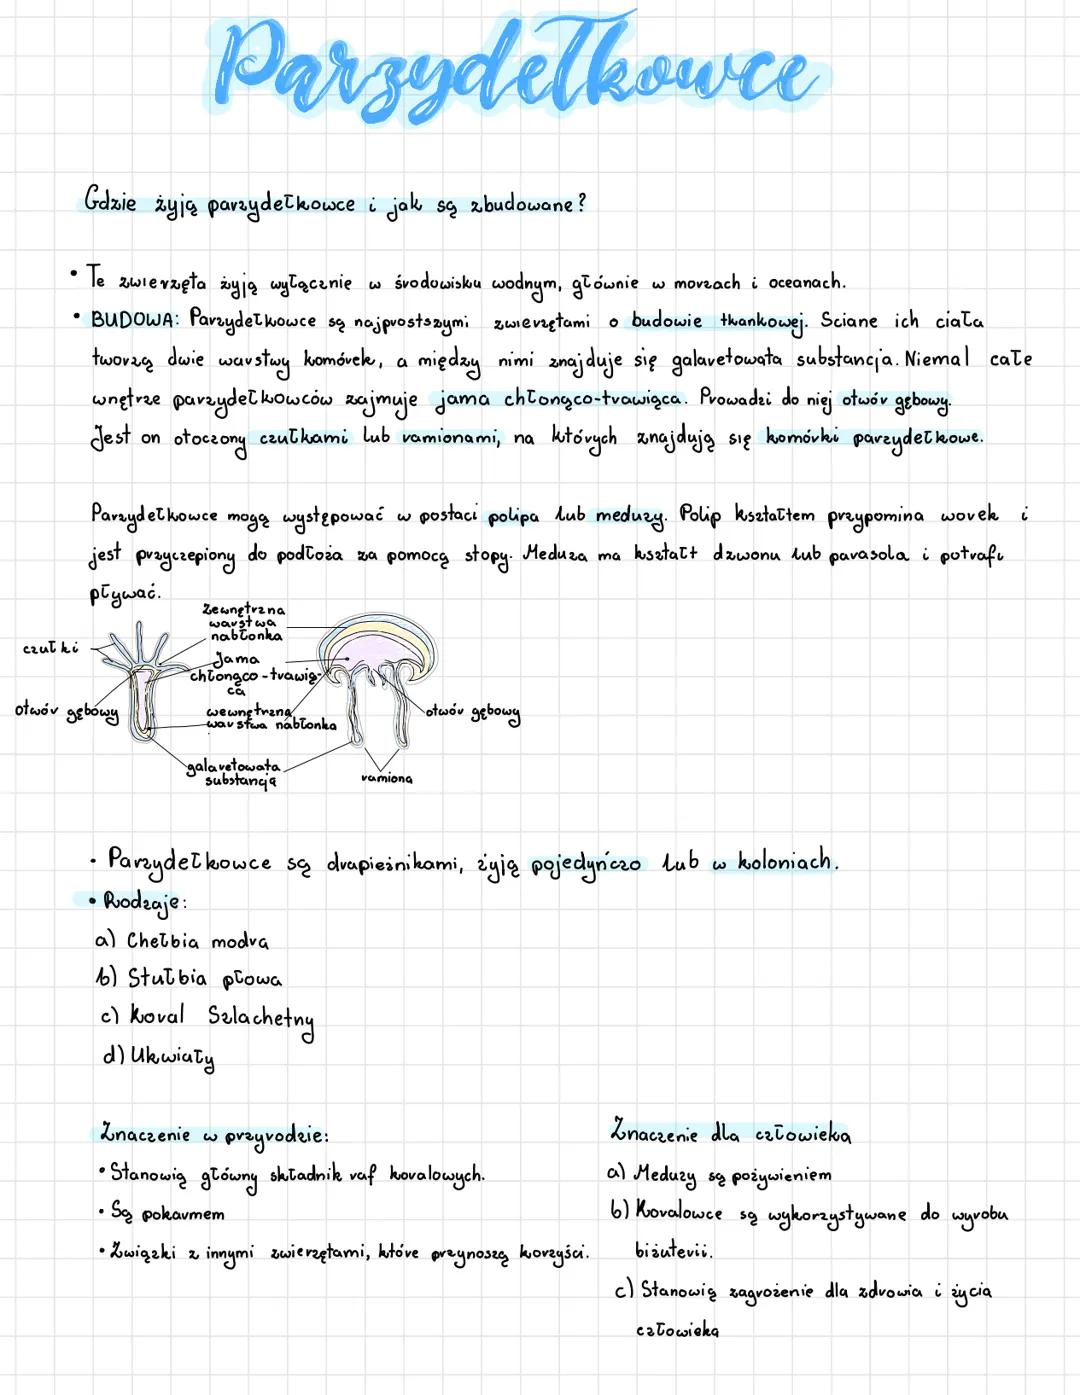 Parzydełkowce
Gdzie żyją parzydełkowce i jak są zbudowane?
• Te zwierzęta żyją wyłącznie w środowisku wodnym, głównie w morzach i oceanach.
• BUDOWA: Parzydełkowce są najprostszymi zwierzętami o budowie tkankowej. Sciane ich ciała
tworzą dwie warstwy komórek, a między nimi znajduje się galaretowata substancja. Niemal całe
wnętrze parzydełkowców zajmuje jama chłonąco-trawiąca. Prowadzi do niej otwór gębowy.
Jest on otoczony czułkami lub ramionami, na których znajdują się komórki parzydełkowe.
Parzydełkowce mogą występować w postaci polipa lub meduzy. Polip kształtem przypomina worek i
jest przyczepiony do podłoża za pomocą stopy. Meduza ma kształt dzwonu lub parasola i potrafi
pływać.
Zewnętrzna
warstwa
nabłonka
czułki
Jama
chłonąco-trawią-
ca
otwór gębowy
wewnętrzna
warstwa nabłonka
otwór gębowy
galaretowata
substancją
ramiona
• Parzydełkowce są drapieżnikami, żyją pojedyńczo lub w koloniach.
• Rodzaje:
a) Chełbia modra
b) Stułbia płowa
c) Koral Szlachetny
d) Ukwiały
Znaczenie w przyrodzie:
• Stanowią główny składnik raf koralowych.
• Są pokarmem
• Związki z innymi zwierzętami, które przynoszą korzyści.
Znaczenie dla człowieka
a) Meduzy są pożywieniem
b) Koralowce są wykorzystywane do wyrobu
biżuterii.
c) Stanowią zagrożenie dla zdrowia i życia
człowieka